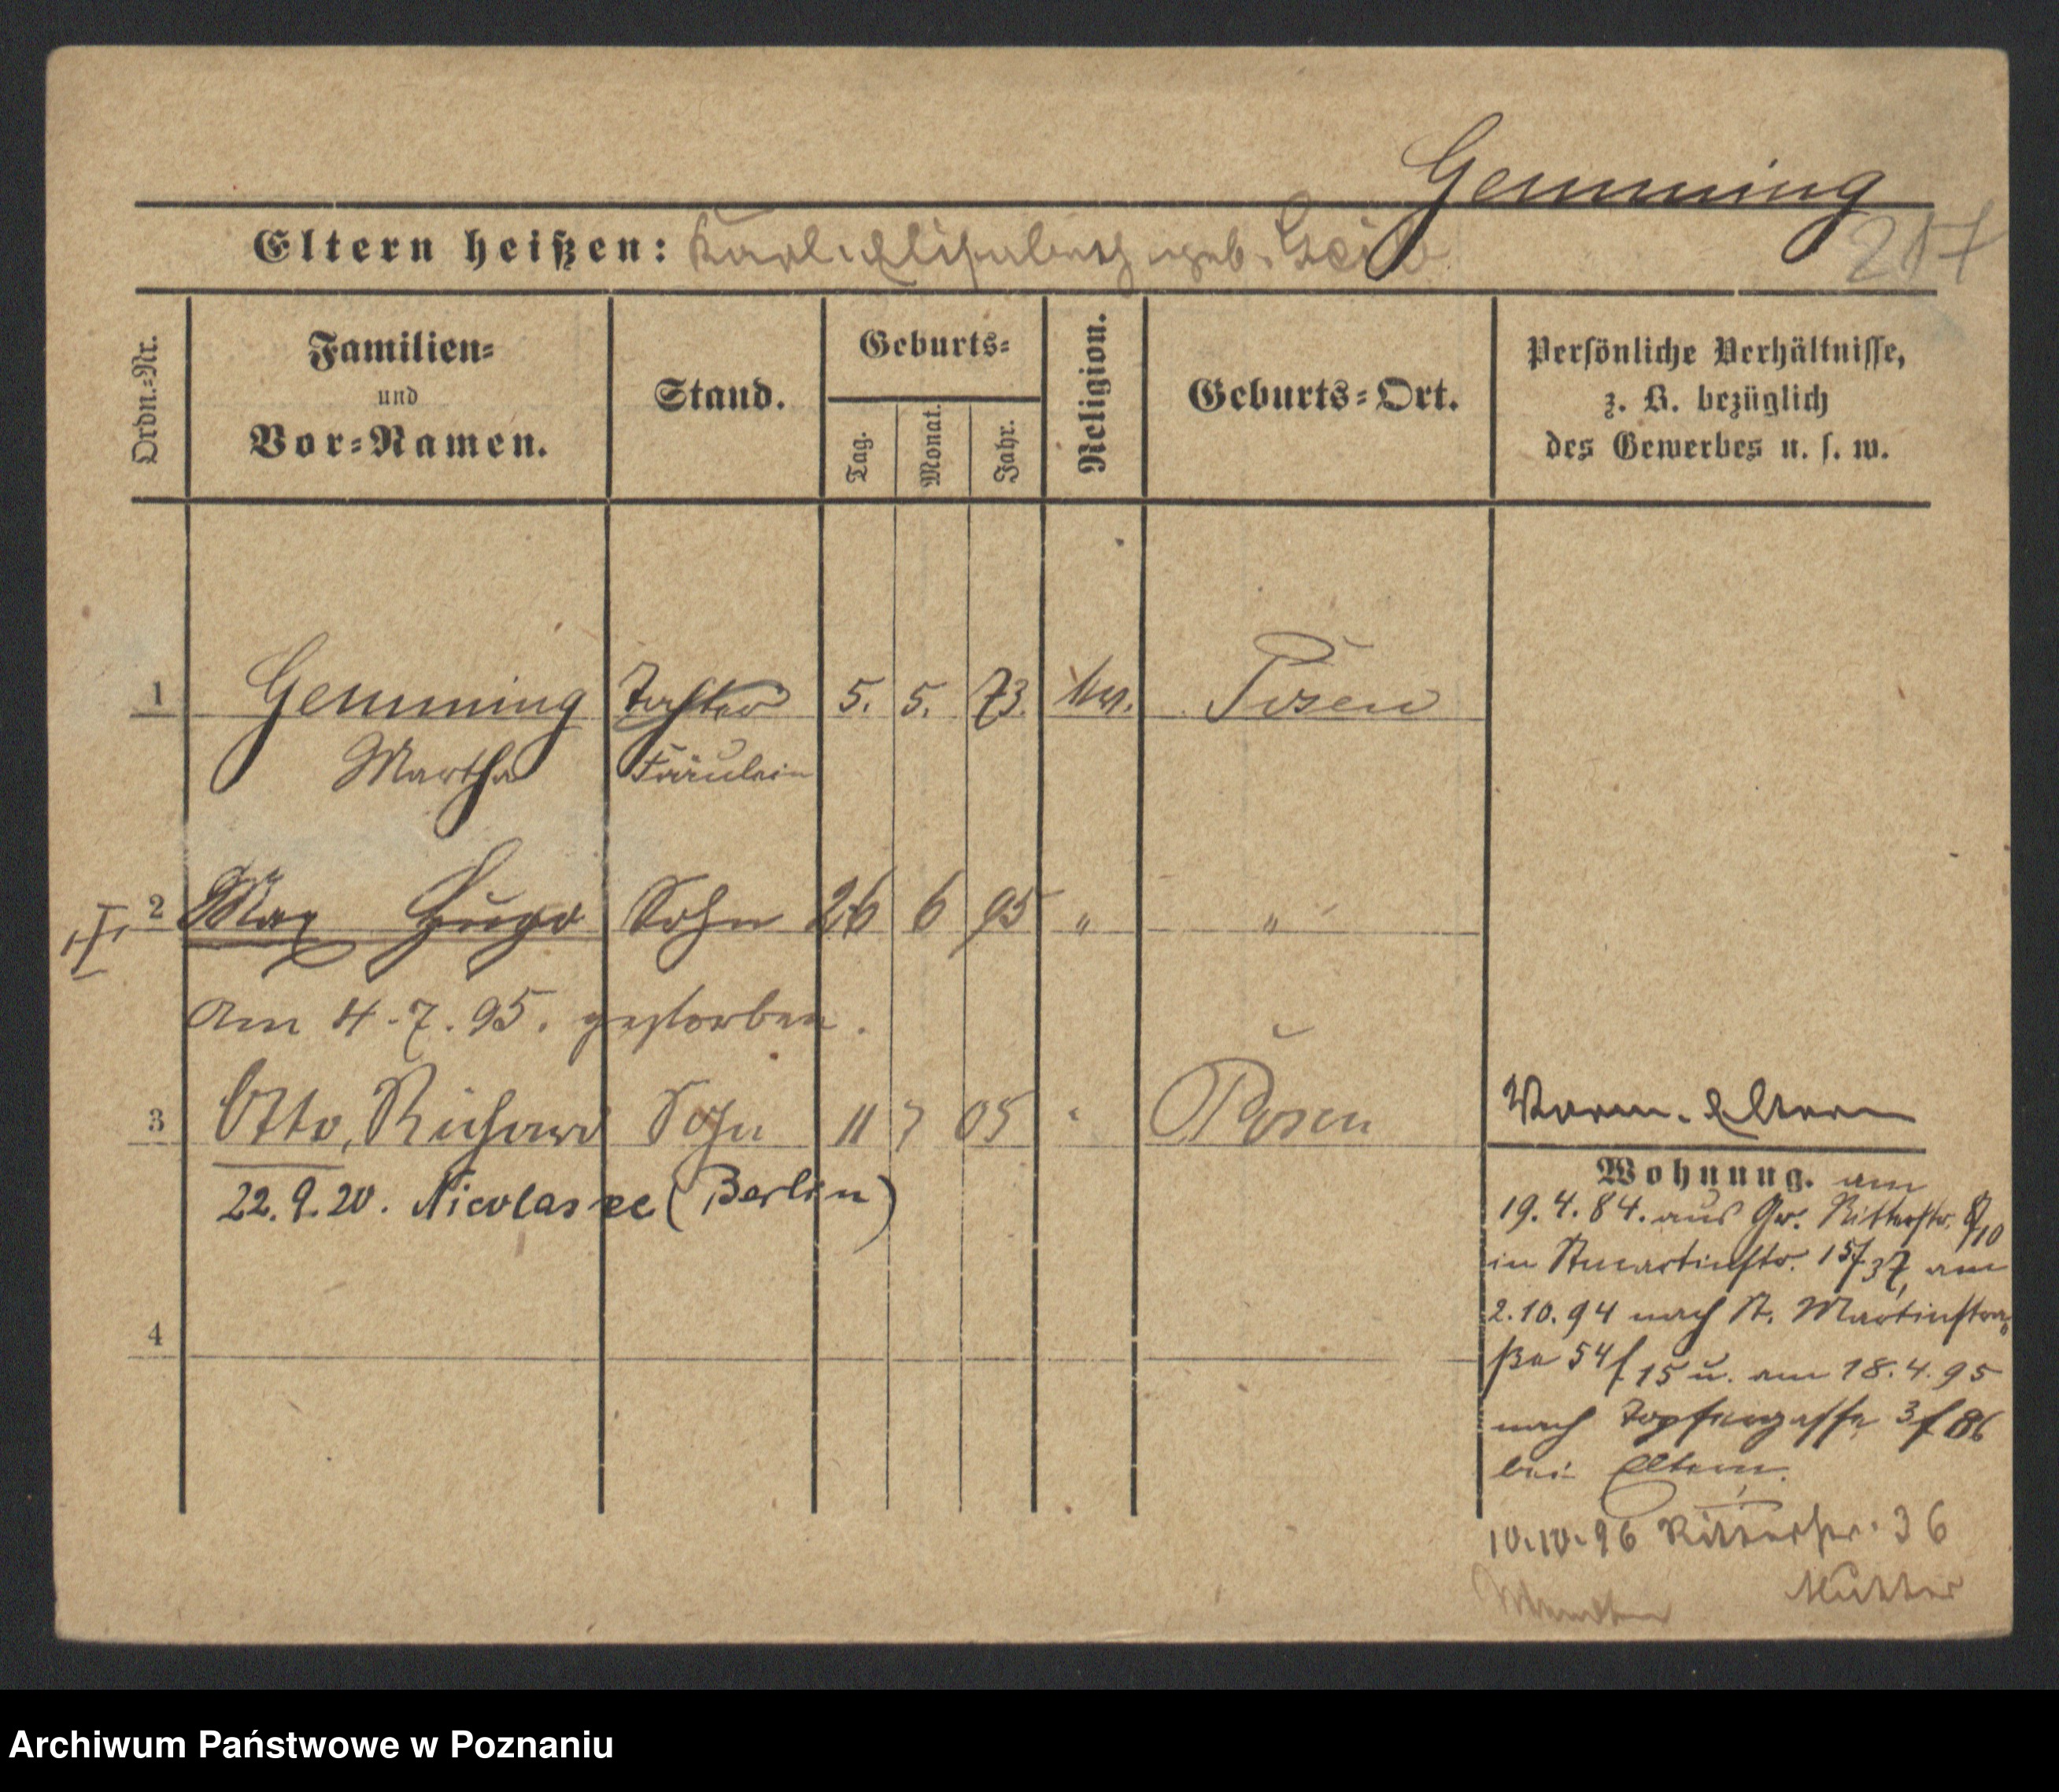 Gemming
217
Eltern heißen: Karl u. Elisabeth geb.
Ordn.=Nr.
Familien=
und
Vor=Namen.
Stand.
Geburts=
Tag.
Monat.
Jahr.
Religion.
Geburts=Ort.
Persönliche Verhältnisse,
z. B. bezüglich
des Gewerbes u. s. w.
1 Gemming Tochter 5. 5. 73. Posen
Martha Fräulein
2 Max Hugo Sohn 26 6 95 " "
Am 4.7.95. gestorben.
3 Otto, Richard Sohn 11 7 05 " Posen
22.9.20. Nicolassee (Berlin)
4
Eltern
Wohnung. am
19.4.84. aus Gr. Ritterstr. 8/10
in St. Martinstr. 15/37, am
2.10.94 nach St. Martinstra=
ße 54/15 u. am 18.4.95
nach Topfergasse 3/86
bei Eltern.
10.10.96 Ritterstr. 36
Mutter
Archiwum Państwowe w Poznaniu